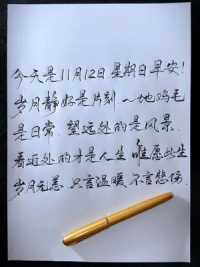 今天是11月12日星期日早安!
岁月静好是片刻 一地鸡毛
是日常.望远处的是风景.
看近处的才是人生 唯愿此生
岁月无恙 只言温暖 不言悲伤.